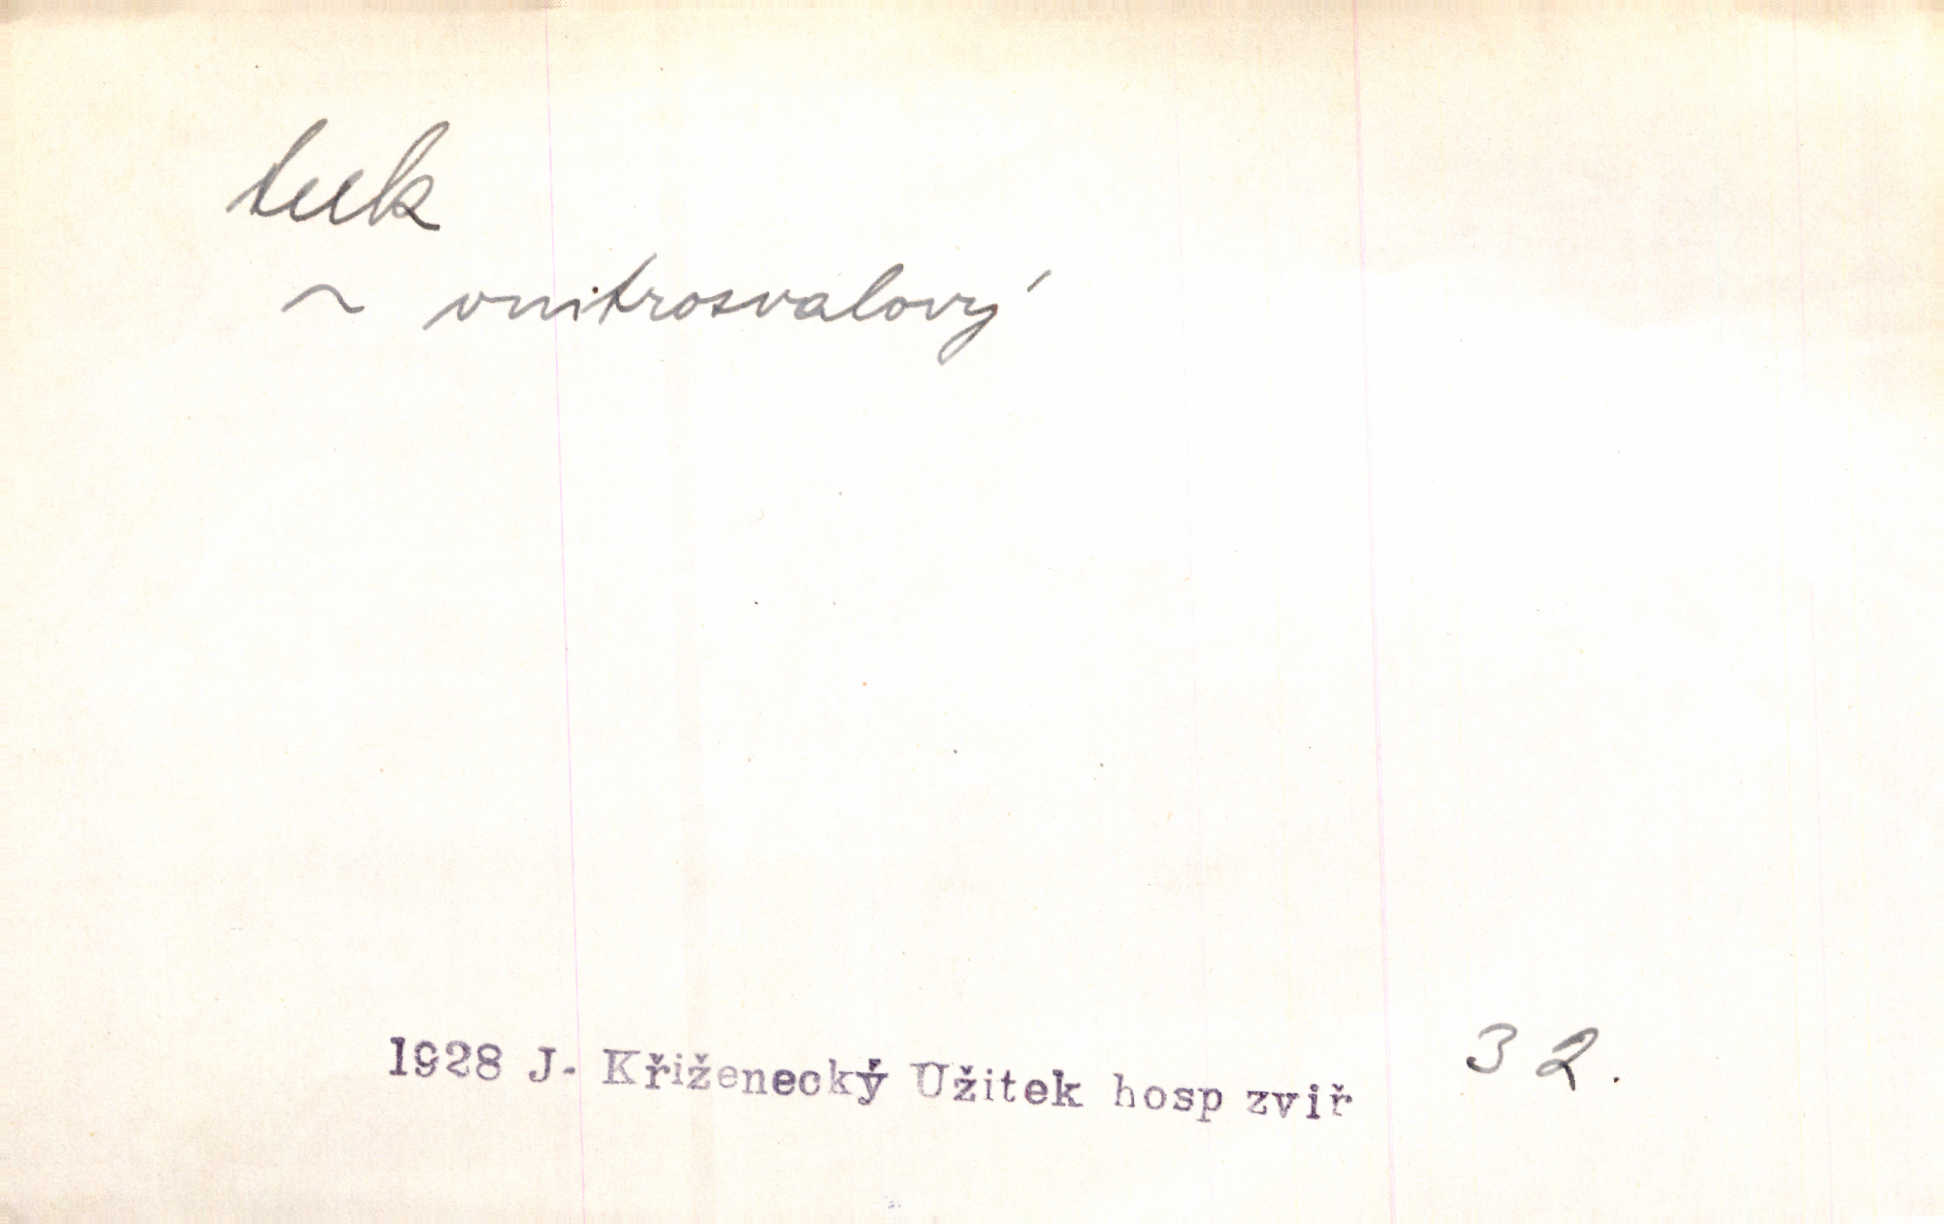 tuk
~ vnitrosvalový
1928 J. Křiženecký Užitek hosp zviř 32.